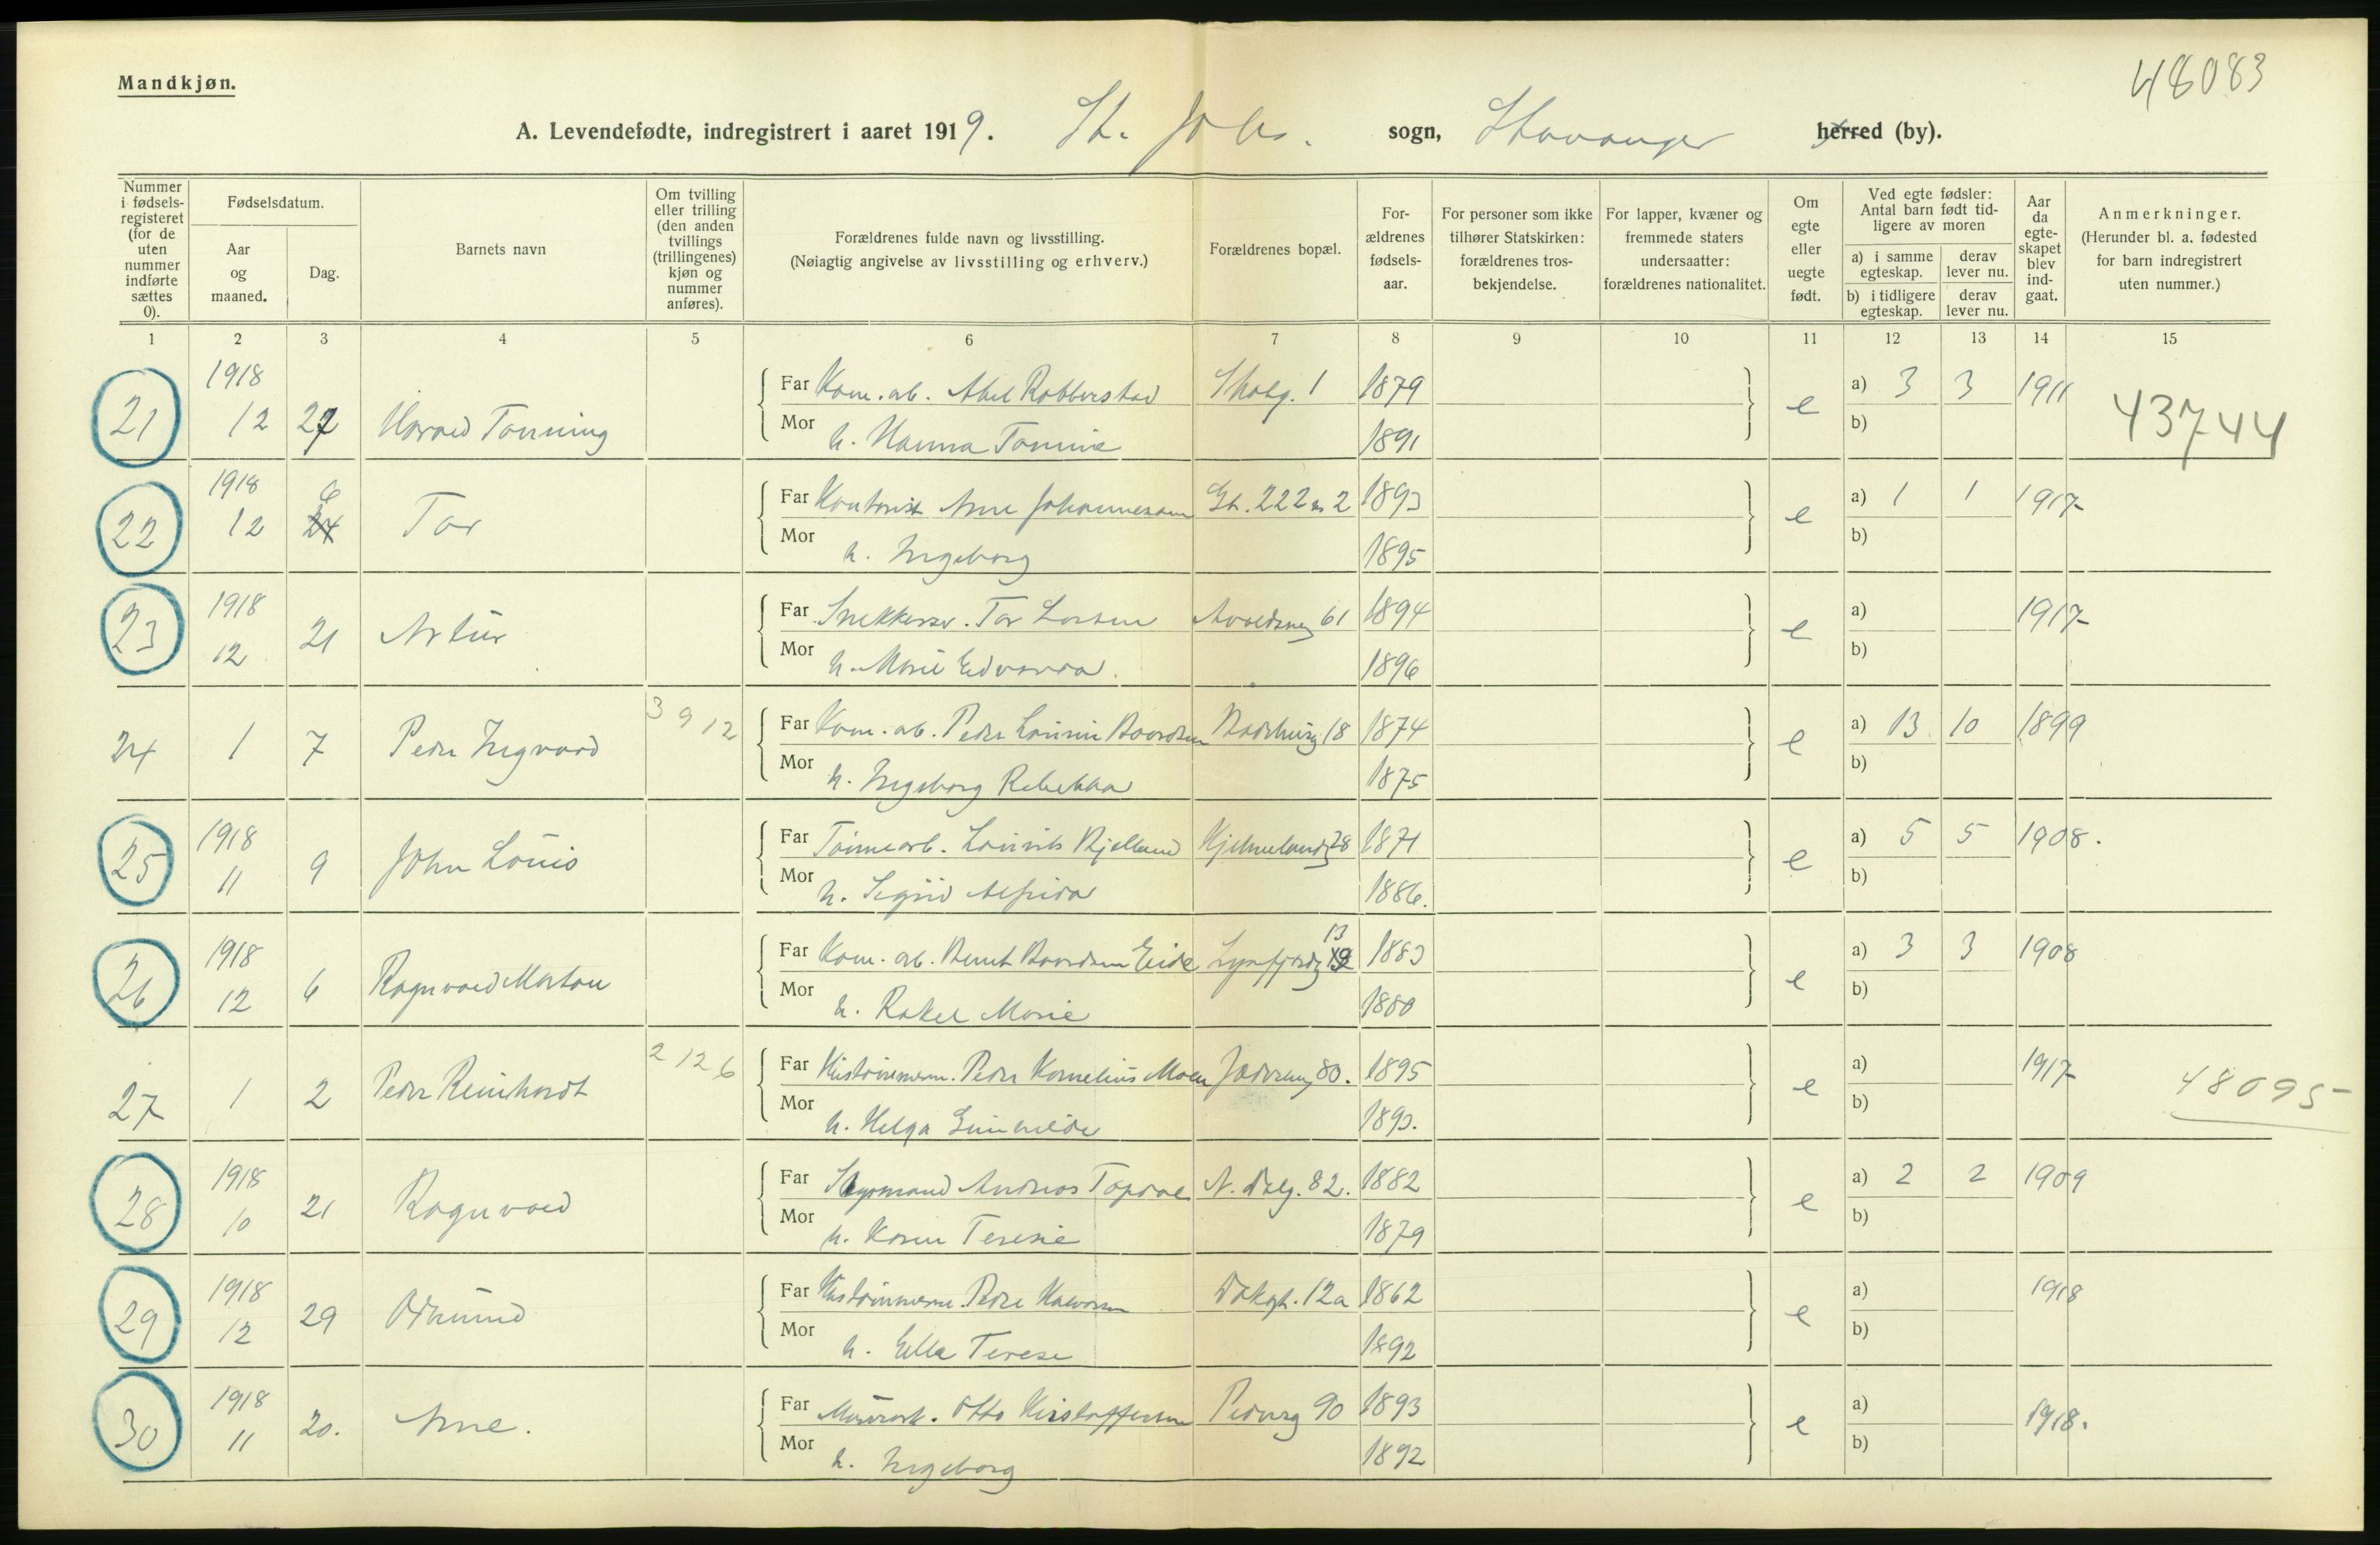 Mandkjøn.
48083
A. Levendefødte, indregistrert i aaret 1919. St. Johs. sogn, Stavanger herred (by).
Nummer i fødsels-registeret (for de uten nummer indførte sættes 0).
Fødselsdatum.
Aar og maaned.
Dag.
Barnets navn
Om tvilling eller trilling (den anden tvillings (trillingenes) kjøn og nummer anføres).
Forældrenes fulde navn og livsstilling.
(Nøiagtig angivelse av livsstilling og erhverv.)
Forældrenes bopæl.
For-ældrenes fødsels-aar.
For personer som ikke tilhører Statskirken: forældrenes tros-bekjendelse.
For lapper, kvæner og fremmede staters undersaatter: forældrenes nationalitet.
Om egte eller uegte født.
Ved egte fødsler: Antal barn født tid-ligere av moren
a) i samme egteskap.
derav lever nu.
b) i tidligere egteskap.
derav lever nu.
Aar da egte-skapet blev ind-gaat.
Anmerkninger.
(Herunder bl. a. fødested for barn indregistrert uten nummer.)
1 2 3 4 5 6 7 8 9 10 11 12 13 14 15
21 1918 12 27 Harald Tonning Far Kom. arb. Abel Robberstad 1 1879 e a) 3 3 1911 43744
Mor h. Hanna Tomine 1891 b)
22 1918 12 6 Tor Far Kontorist Arne Johannessen 222 2 1893 e a) 1 1 1917
Mor h. Ingeborg 1895 b)
23 1918 12 21 Artur Far Snekkersv. Tor Larsen 61 1894 e a) 1917
Mor h. Marie Edvarda 1896 b)
24 1 7 Peder Ingvard 3 9 12 Far Kom. arb. Peder Baardsen 18 1874 e a) 13 10 1899
Mor h. Ingeborg Rebekka 1875 b)
25 1918 11 9 John Louis Far Laurits Kjelland Hjelmelandg 28 1871 e a) 5 5 1908.
Mor h. Sigrid Alfrida 1886. b)
26 1918 12 6 Ragnvald Morton Far Kom. arb. Bernt Baardsen Eide Lysefjordg 13 1883 e a) 3 3 1908
Mor h. Rakel Marie 1880 b)
27 1 2 Peder Reinhardt 2 12 6 Far Peder Kornelius Moen Jæderveg 80. 1895 e a) 1917 48095
Mor h. Helga Gunhilde 1893. b)
28 1918 10 21 Ragnvald Far Styrmand Andreas Topdal N. Dalg. 82. 1882 e a) 2 2 1909
Mor h. Karen Teresie 1879 b)
29 1918 12 29 Odmund Far Peder Halvorsen 12a 1862 e a) 1918
Mor h. Ella Terese 1892 b)
30 1918 11 20. Arne. Far Murerarb. Otto Kristoffersen Pedersg 90 1893 e a) 1918.
Mor h. Ingeborg 1892 b)